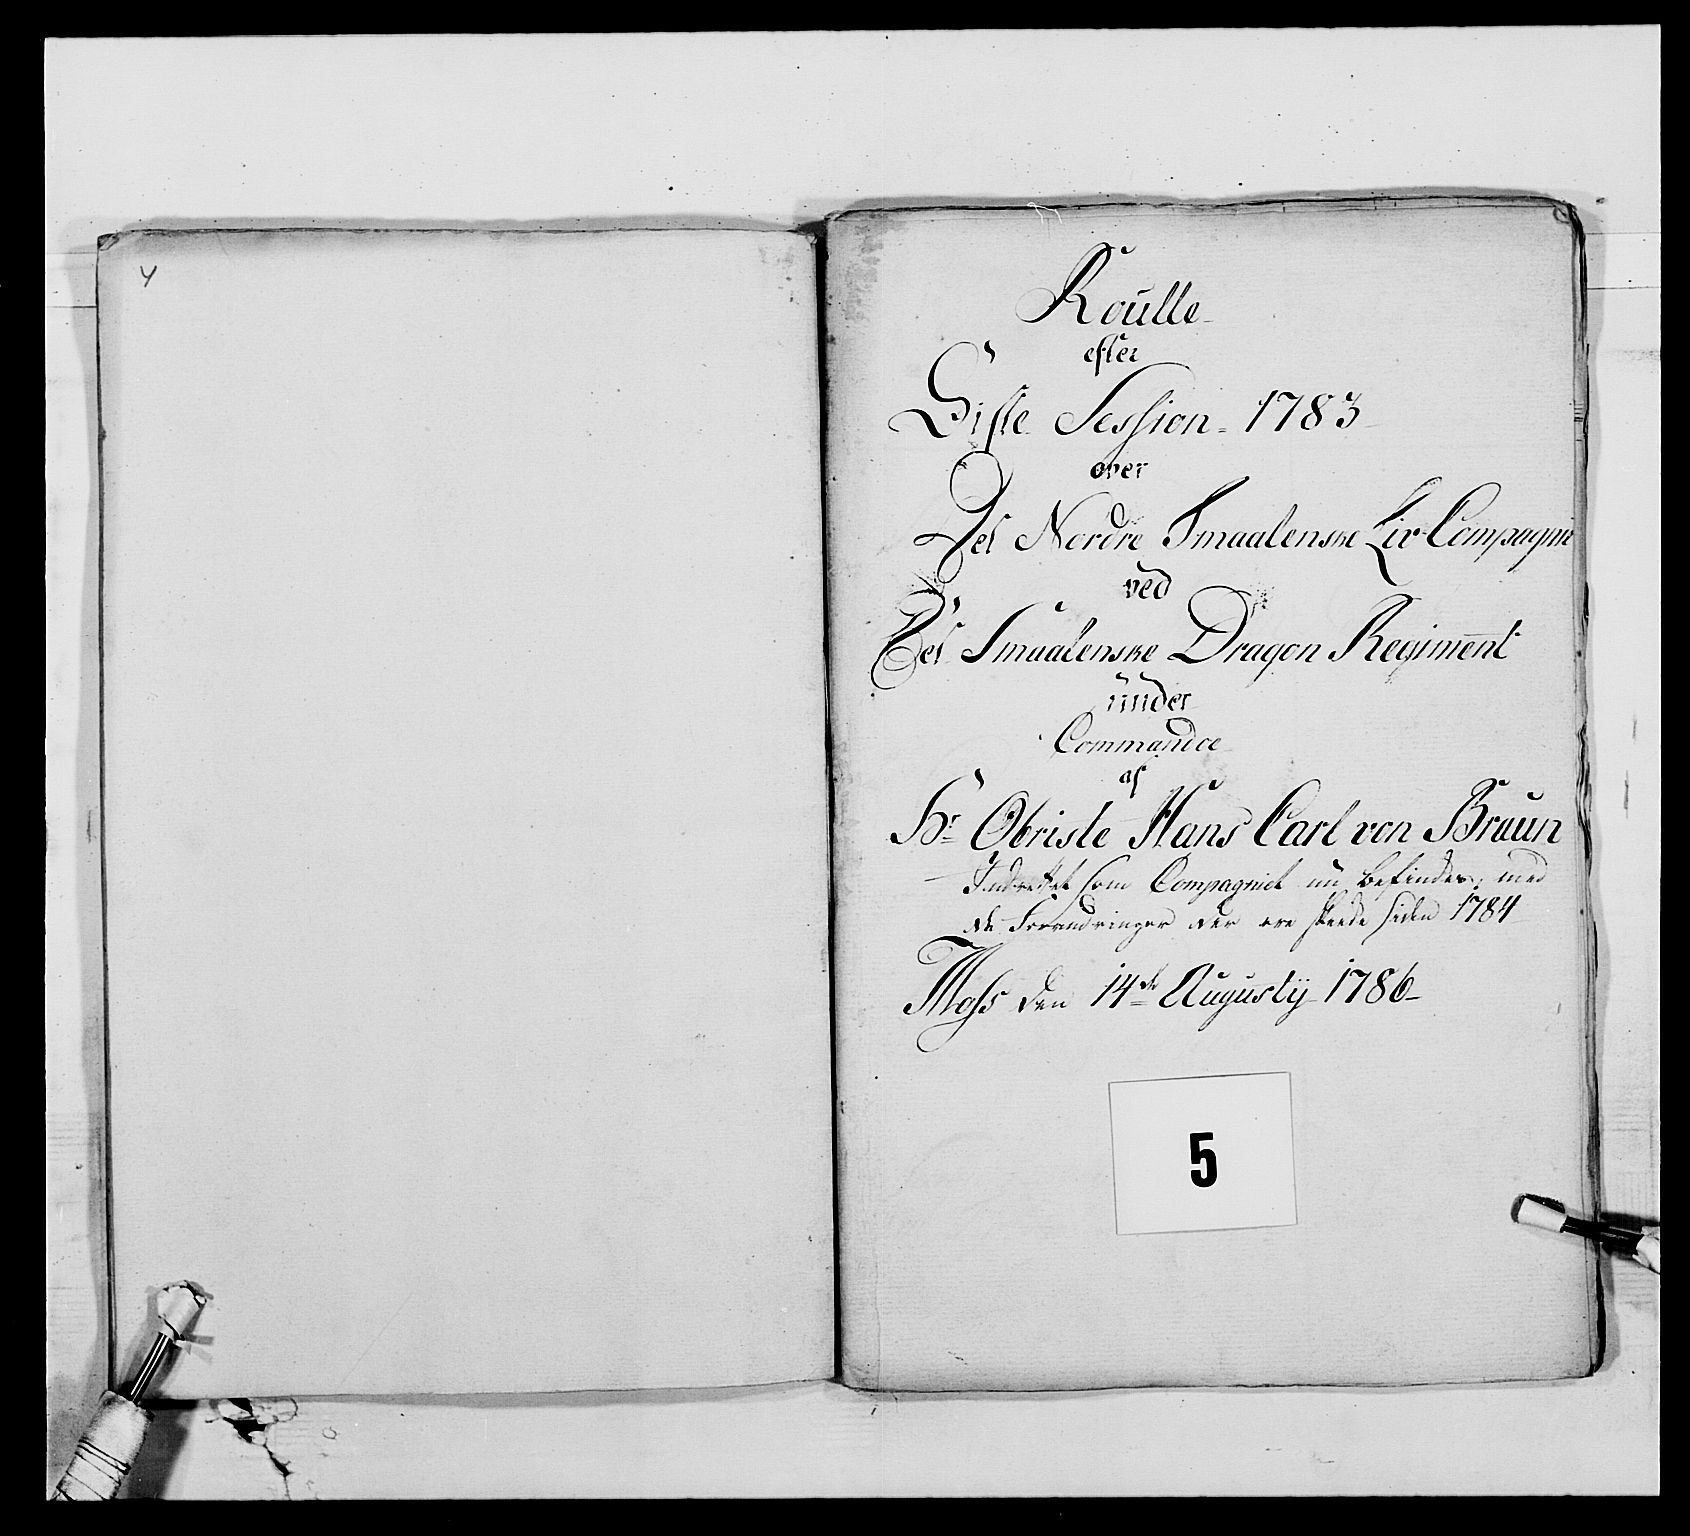 4
Roulle
efter
Siste Session 1783
over
Det Nordre Smaalenske Liv-Compagnie
ved
Det Smaalenske Dragon Regiment
under
Commandoe
af
Hr Obriste Hans Carl von Bruun
Indrettet som Compagniet nu befindes, med
de Forandringer der ere skeede siden 1784
Moss den 14de Augustij 1786
5